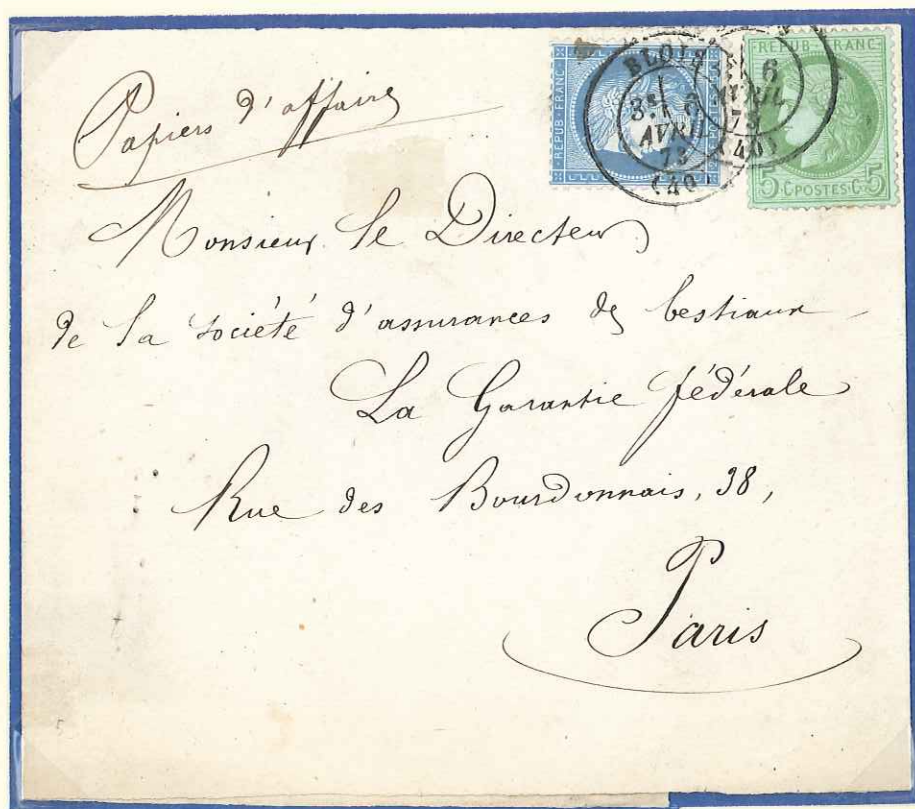 Papiers d'affaire
REPUB·FRANC
BLOIS
3E
6
AVRIL
73
(40)
REPUB·FRANC
6
AVRIL
73
(40)
5 C POSTES C 5
Monsieur le Directeur
de la société d'assurances des bestiaux
La Garantie fédérale
Rue des Bourdonnais, 38,
Paris
5